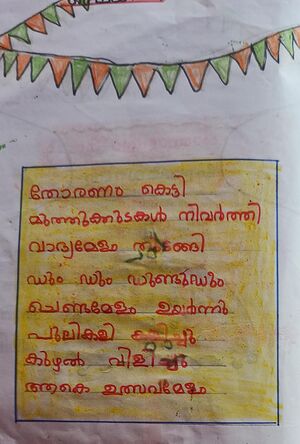 തോരണം കെട്ടി
മുത്തുക്കുടകൾ നിവർത്തി
വാദ്യമേളം തുടങ്ങി
ഡും ഡും ഡുണ്ടുഡും
ചെണ്ടമേളം ഉയർന്നു
പുലികളി
കുഴൽ വിളിച്ചു
ആകെ ഉത്സവമേളം